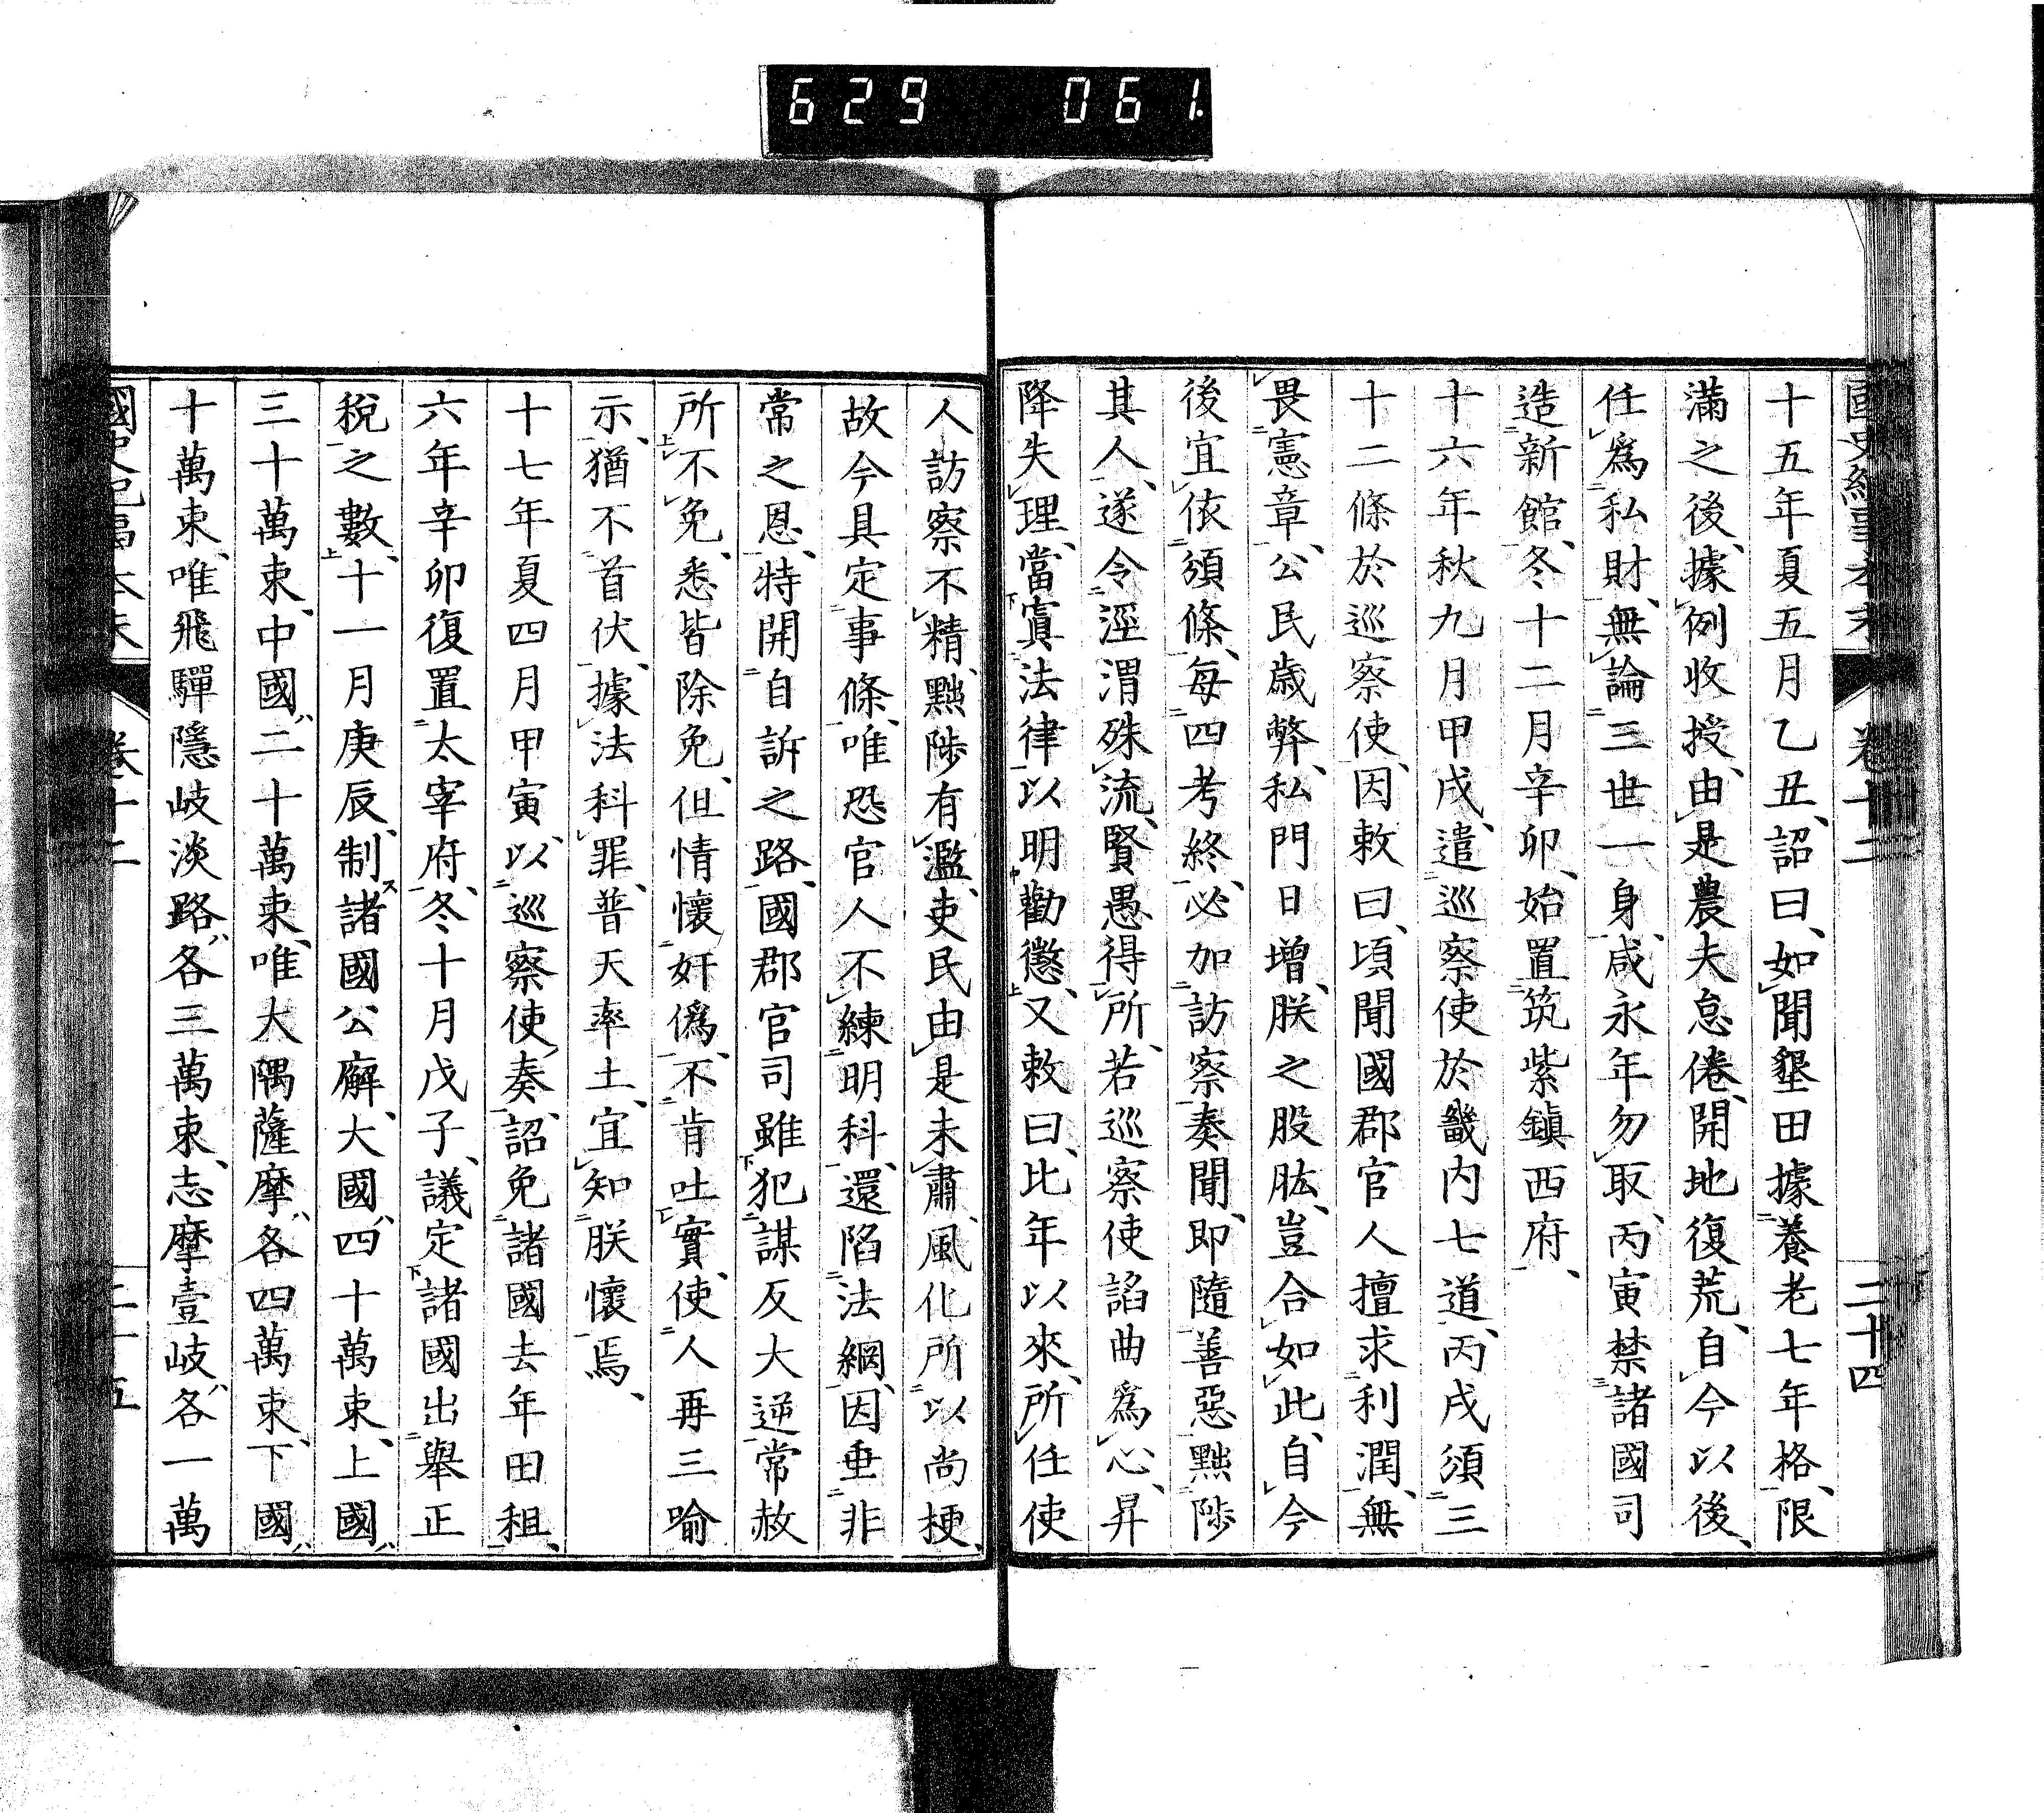 629 061
國史紀事本末 卷十二 二十四
十五年夏五月乙丑、詔曰、如聞墾田據養老七年格、限
滿之後、據例收授、由是農夫怠倦、開地復荒、自今以後、
任爲私財、無論三世一身、咸永年勿取、丙寅禁諸國司
造新館、冬十二月辛卯、始置筑紫鎭西府、
十六年秋九月甲戌、遣巡察使於畿內七道、丙戌須三
十二條於巡察使、因敕曰、頃聞國郡官人擅求利潤、無
畏憲章、公民歲弊、私門日增、朕之股肱、豈合如此、自今
後宜依須條、每四考終、必加訪察奏聞、即隨善惡黜陟
其人、遂令涇渭殊流、賢愚得所、若巡察使諂曲爲心、昇
降失理、當寘法律以明勸懲、又敕曰、比年以來、所任使
人訪察不精、黜陟有濫、吏民由是未肅、風化所以尚梗、
故今具定事條、唯恐官人不練明科、還陷法網、因垂非
常之恩、特開自訴之路、國郡官司雖犯謀反大逆常赦
所不免、悉皆除免、但情懷奸僞、不肯吐實、使人再三喻
示、猶不首伏、據法科罪、普天率土、宜知朕懷焉、
十七年夏四月甲寅、以巡察使奏、詔免諸國去年田租、
六年辛卯復置太宰府、冬十月戊子、議定諸國出舉正
稅之數、十一月庚辰、制諸國公廨、大國四十萬束、上國
三十萬束、中國二十萬束、唯大隅薩摩各四萬束、下國
十萬束、唯飛驒隱岐淡路各三萬束、志摩壹岐各一萬
國史紀事本末 卷十二 二十五